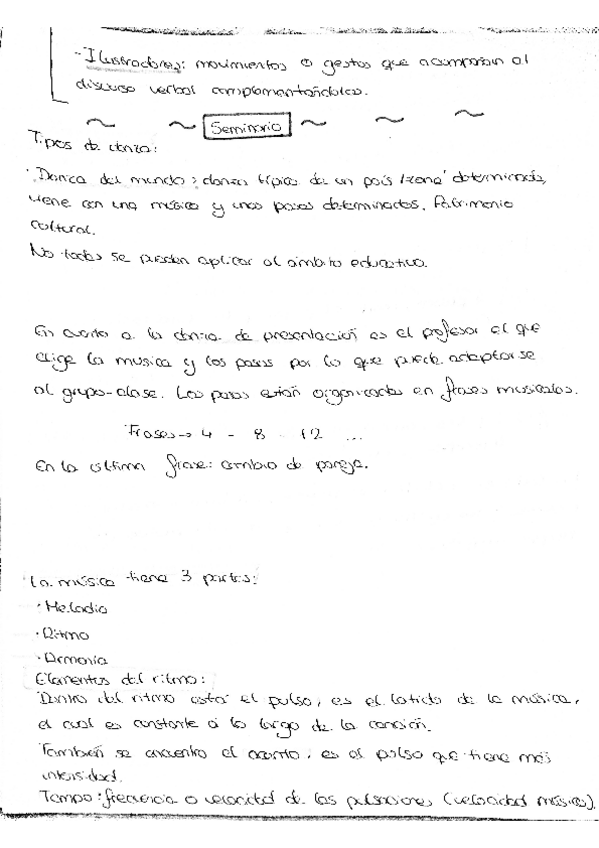 - Ilustradores: movimientos o gestos que acompañan al
discurso verbal complementándolos.
Seminario
Tipos de danza:
· Danza del mundo: danzas típica de un país/zona determinada,
viene con una música y unos pasos determinados. Patrimonio
cultural.
No todas se pueden aplicar al ámbito educativo.
En cuanto a la danza de presentación es el profesor el que
elige la música y los pasos por lo que puede adaptarse
al grupo-clase. Los pasos están organizados en frases musicales.
Frases → 4 - 8 - 12 ...
En la última frase: cambio de pareja.
La música tiene 3 partes:
· Melodía
· Ritmo
· Armonía
Elementos del ritmo:
Dentro del ritmo está el pulso, es el latido de la música,
el cual es constante a lo largo de la canción.
También se encuentra el acento, es el pulso que tiene más
intensidad.
Tempo: frecuencia o velocidad de las pulsaciones (velocidad música).